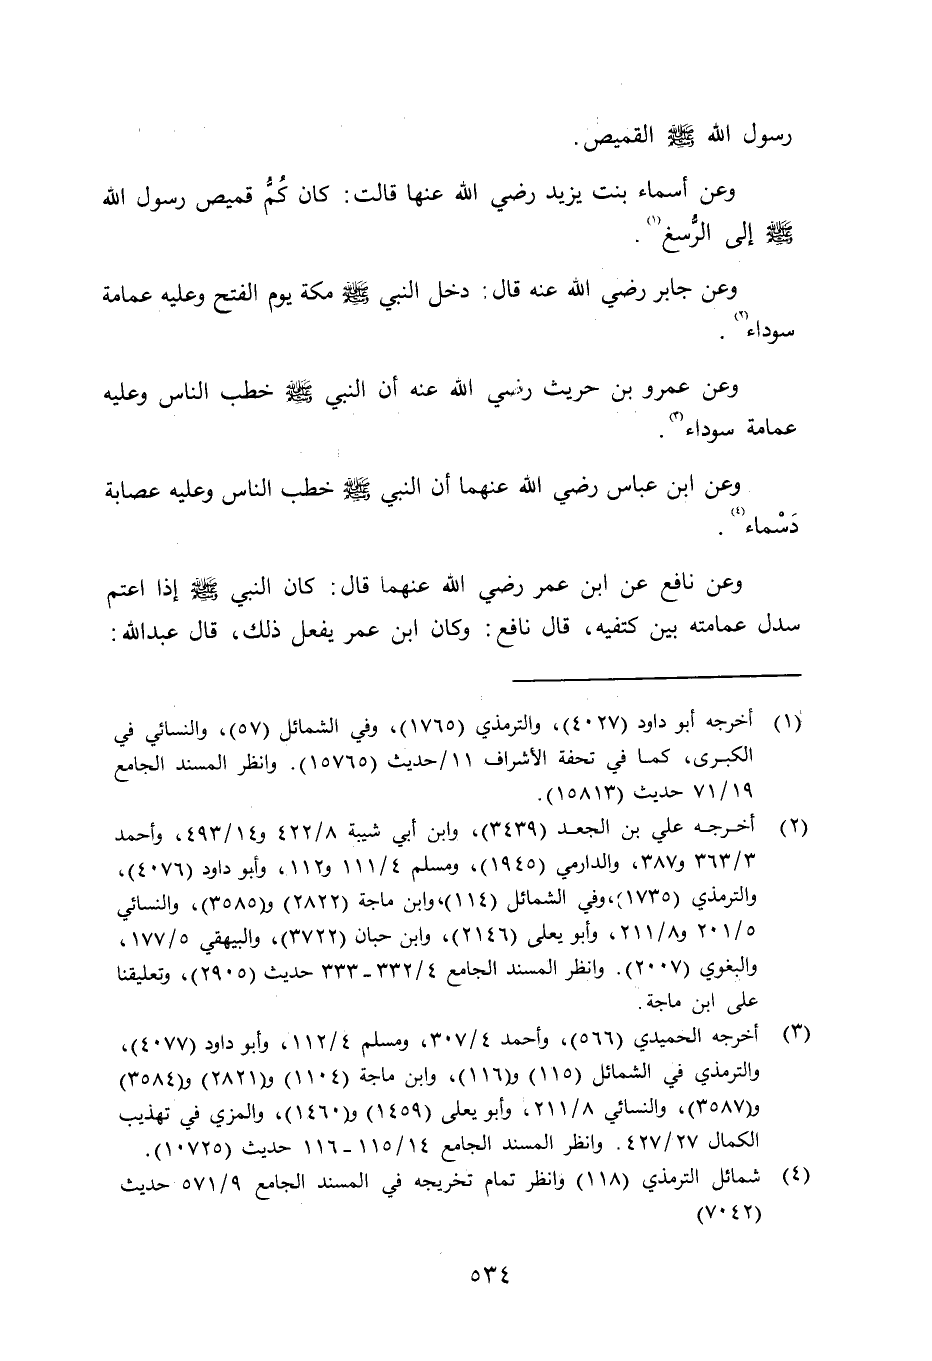 رسول الله ﷺ القميص.
وعن أسماء بنت يزيد رضي الله عنها قالت: كان كُمُّ قميص رسول الله
ﷺ إلى الرُّسغ(١).
وعن جابر رضي الله عنه قال: دخل النبي ﷺ مكة يوم الفتح وعليه عمامة
سوداء(٢).
وعن عمرو بن حريث رضي الله عنه أن النبي ﷺ خطب الناس وعليه
عمامة سوداء(٣).
وعن ابن عباس رضي الله عنهما أن النبي ﷺ خطب الناس وعليه عصابة
دَسْماء(٤).
وعن نافع عن ابن عمر رضي الله عنهما قال: كان النبي ﷺ إذا اعتم
سدل عمامته بين كتفيه، قال نافع: وكان ابن عمر يفعل ذلك، قال عبدالله:
(١) أخرجه أبو داود (٤٠٢٧)، والترمذي (١٧٦٥)، وفي الشمائل (٥٧)، والنسائي في
الكبرى، كما في تحفة الأشراف ١١/حديث (١٥٧٦٥). وانظر المسند الجامع
٧١/١٩ حديث (١٥٨١٣).
(٢) أخرجه علي بن الجعد (٣٤٣٩)، وابن أبي شيبة ٤٢٢/٨ و٤٩٣/١٤، وأحمد
٣٦٣/٣ و٣٨٧، والدارمي (١٩٤٥)، ومسلم ١١١/٤ و١١٢، وأبو داود (٤٠٧٦)،
والترمذي (١٧٣٥)،وفي الشمائل (١١٤)،وابن ماجة (٢٨٢٢) و(٣٥٨٥)، والنسائي
٢٠١/٥ و٢١١/٨، وأبو يعلى (٢١٤٦)، وابن حبان (٣٧٢٢)، والبيهقي ١٧٧/٥،
والبغوي (٢٠٠٧). وانظر المسند الجامع ٣٣٢/٤ ـ ٣٣٣ حديث (٢٩٠٥)، وتعليقنا
على ابن ماجة.
(٣) أخرجه الحميدي (٥٦٦)، وأحمد ٣٠٧/٤، ومسلم ١١٢/٤، وأبو داود (٤٠٧٧)،
والترمذي في الشمائل (١١٥) و(١١٦)، وابن ماجة (١١٠٤) و(٢٨٢١) و(٣٥٨٤)
و(٣٥٨٧)، والنسائي ٢١١/٨، وأبو يعلى (١٤٥٩) و(١٤٦٠)، والمزي في تهذيب
الكمال ٤٢٧/٢٧. وانظر المسند الجامع ١١٥/١٤ ـ ١١٦ حديث (١٠٧٢٥).
(٤) شمائل الترمذي (١١٨) وانظر تمام تخريجه في المسند الجامع ٥٧١/٩ حديث
(٧٠٤٢)
٥٣٤